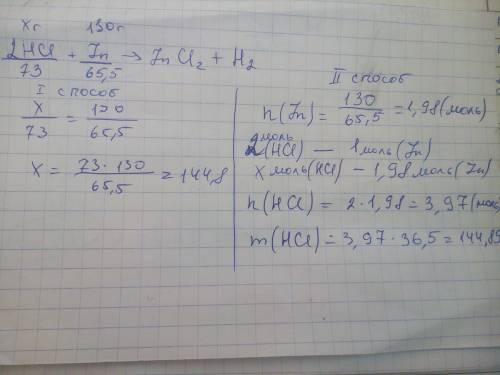 Xг 130г
2HCl + Zn → ZnCl₂ + H₂
73 65,5
I способ
X/73 = 130/65,5
X = 73·130/65,5 = 144,8
II способ
n(Zn) = 130/65,5 = 1,98(моль)
2моль(HCl) — 1моль(Zn)
X моль(HCl) — 1,98 моль(Zn)
n(HCl) = 2·1,98 = 3,97(моль)
m(HCl) = 3,97·36,5 = 144,8